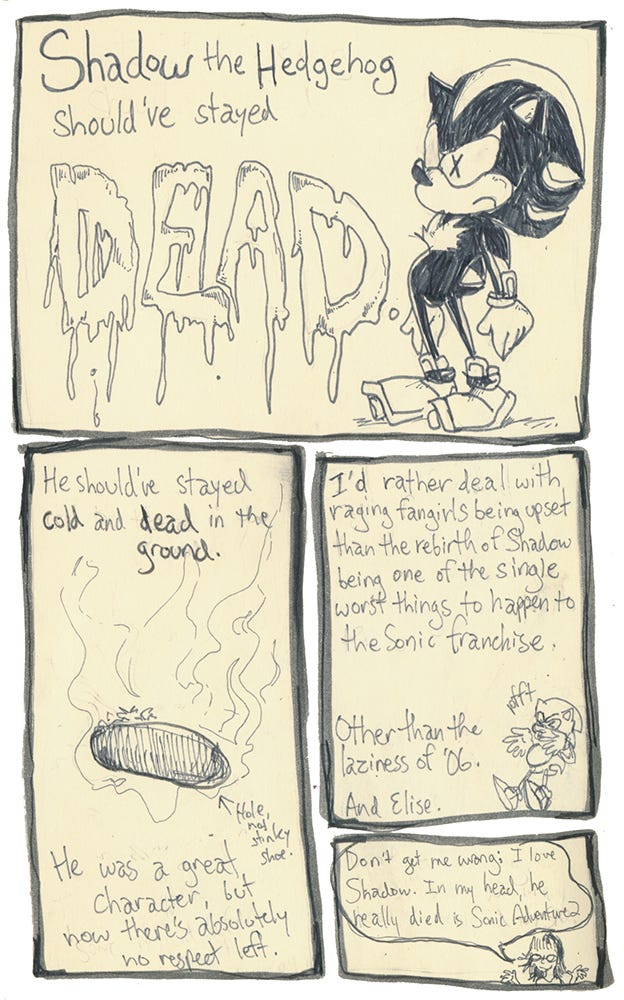 Shadow the Hedgehog
should've stayed
DEAD.
He should've stayed
cold and dead in the
ground.
Hole,
not
stinky
shoe.
He was a great
character, but
now there's absolutely
no respect left.
I'd rather deal with
raging fangirls being upset
than the rebirth of Shadow
being one of the single
worst things to happen to
the Sonic franchise.
pfft
Other than the
laziness of '06.
And Elise.
Don't get me wrong; I love
Shadow. In my head, he
really died is Sonic Adventure 2